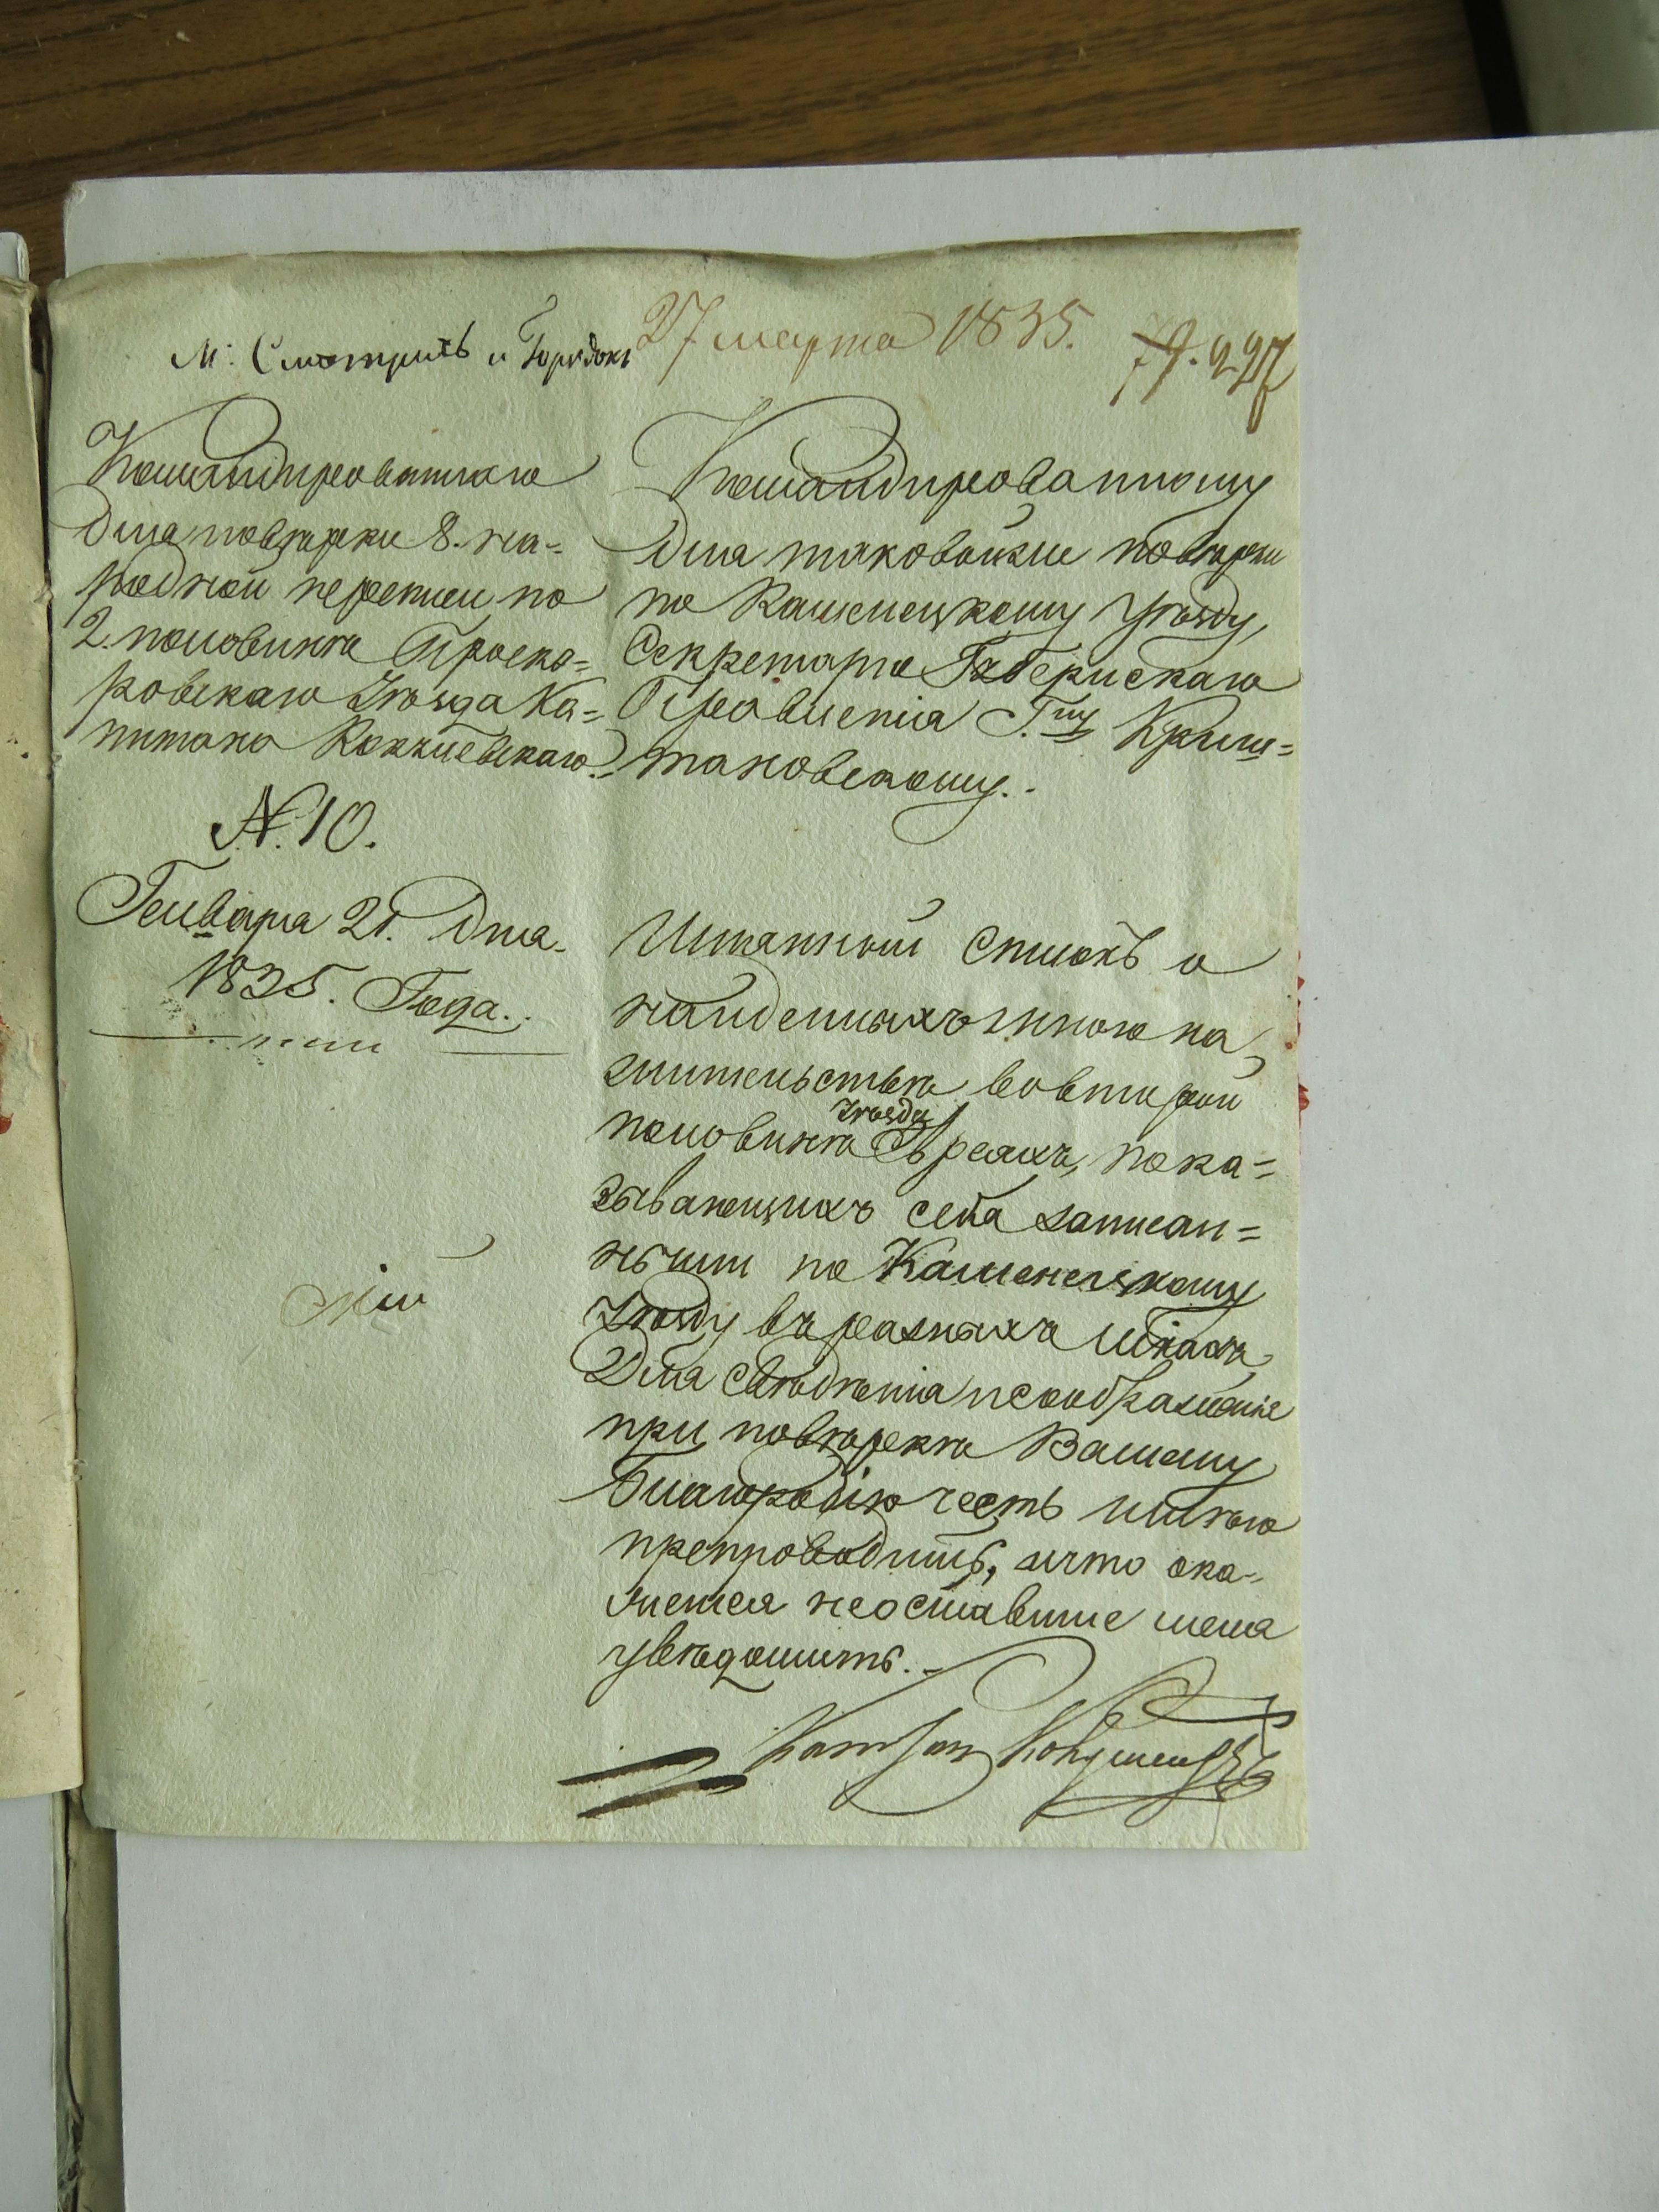 М: Смотричь и Городокъ
27 марта 1835.
79. 227
Командированнаго
для повѣрки 8. на=
родной переписи по
2. половинѣ Проску=
ровскаго уѣзда Ка=
питана
N. 10.
Генваря 21. дня
1835. Года.
Командированному
для таковой же повѣрки
по Каменецкому уѣзду,
Секретарю Губернскаго
Правленія Г.ну Крыш=
тановскому.
Имянной списокъ о
найденныхъ мною на
жительствѣ во второй
половинѣ уѣзда Евреяхъ, пока=
зывающихъ себя записан=
ными по Каменецкому
уѣзду въ разныхъ
Для свѣдѣнія и соображенія
при повѣркѣ Вашему
Благородію честь имѣю
препроводить, и что ока=
жется неоставте меня
увѣдомить.
Капитан